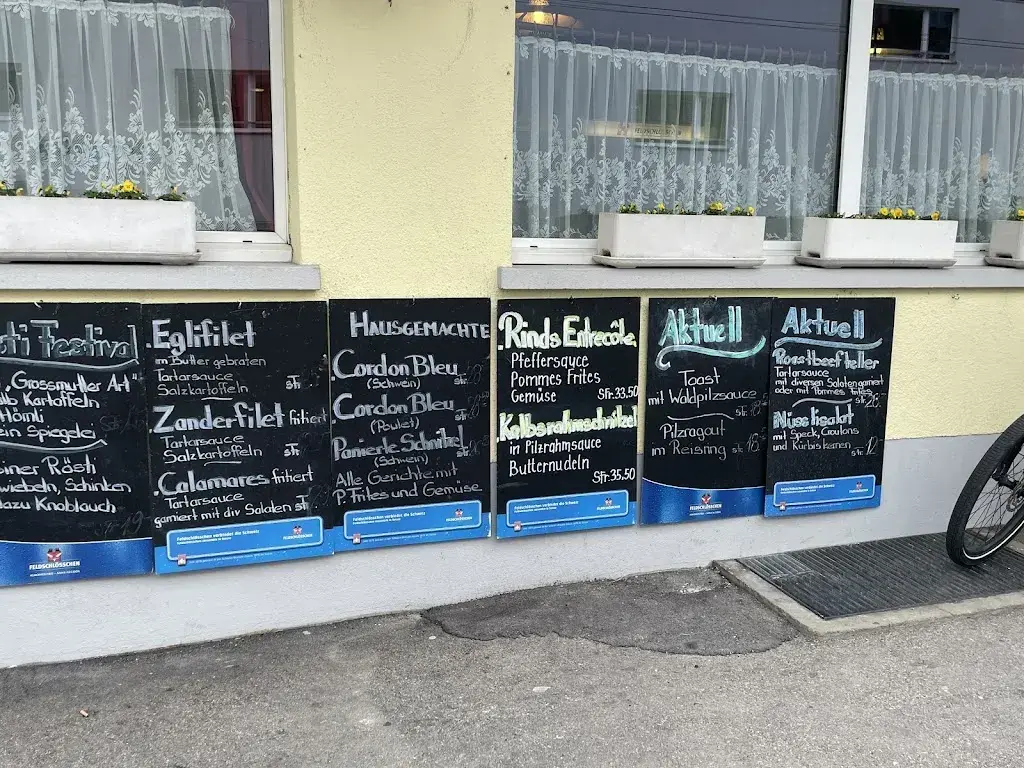 sti Festival
"Grossmutter Art"
lb Kartoffeln
Hörnli
ein Spiegelei
einer Rösti
wiebeln, Schinken
dazu Knoblauch
19.
FELDSCHLÖSSCHEN
Eglifilet
im Butter gebraten
Tartarsauce
Salzkartoffeln sfr.
Zanderfilet fritiert
Tartarsauce
Salzkartoffeln sfr.
Calamares fritiert
Tartarsauce
garniert mit div Salaten sfr.
Feldschlösschen verbindet die Schweiz
FELDSCHLÖSSCHEN
HAUSGEMACHTE
Cordon Bleu
(Schwein) sfr.
Cordon Bleu
(Poulet) sfr.
Panierte Schnitzel
(Schwein) sfr.
Alle Gerichte mit
P. Frites und Gemüse
Feldschlösschen verbindet die Schweiz
FELDSCHLÖSSCHEN
Rinds Entrecôte,
Pfeffersauce
Pommes Frites
Gemüse Sfr. 33.50
Kalbsrahmschnitzel
in Pilzrahmsauce
Butternudeln
Sfr. 35.50
Feldschlösschen verbindet die Schweiz
FELDSCHLÖSSCHEN
Aktuell
Toast
mit Waldpilzsauce
sfr.
Pilzragout
im Reisring sfr.
FELDSCHLÖSSCHEN
Aktuell
Roastbeefteller
Tartarsauce
mit diversen Salaten garniert
oder mit Pommes frites
sfr. 28.
Nüsslisalat
mit Speck, Croutons
und Kürbiskernen
sfr. 12.
Feldschlösschen verbindet die Schweiz
FELDSCHLÖSSCHEN
FELDSCHLÖSSCHEN